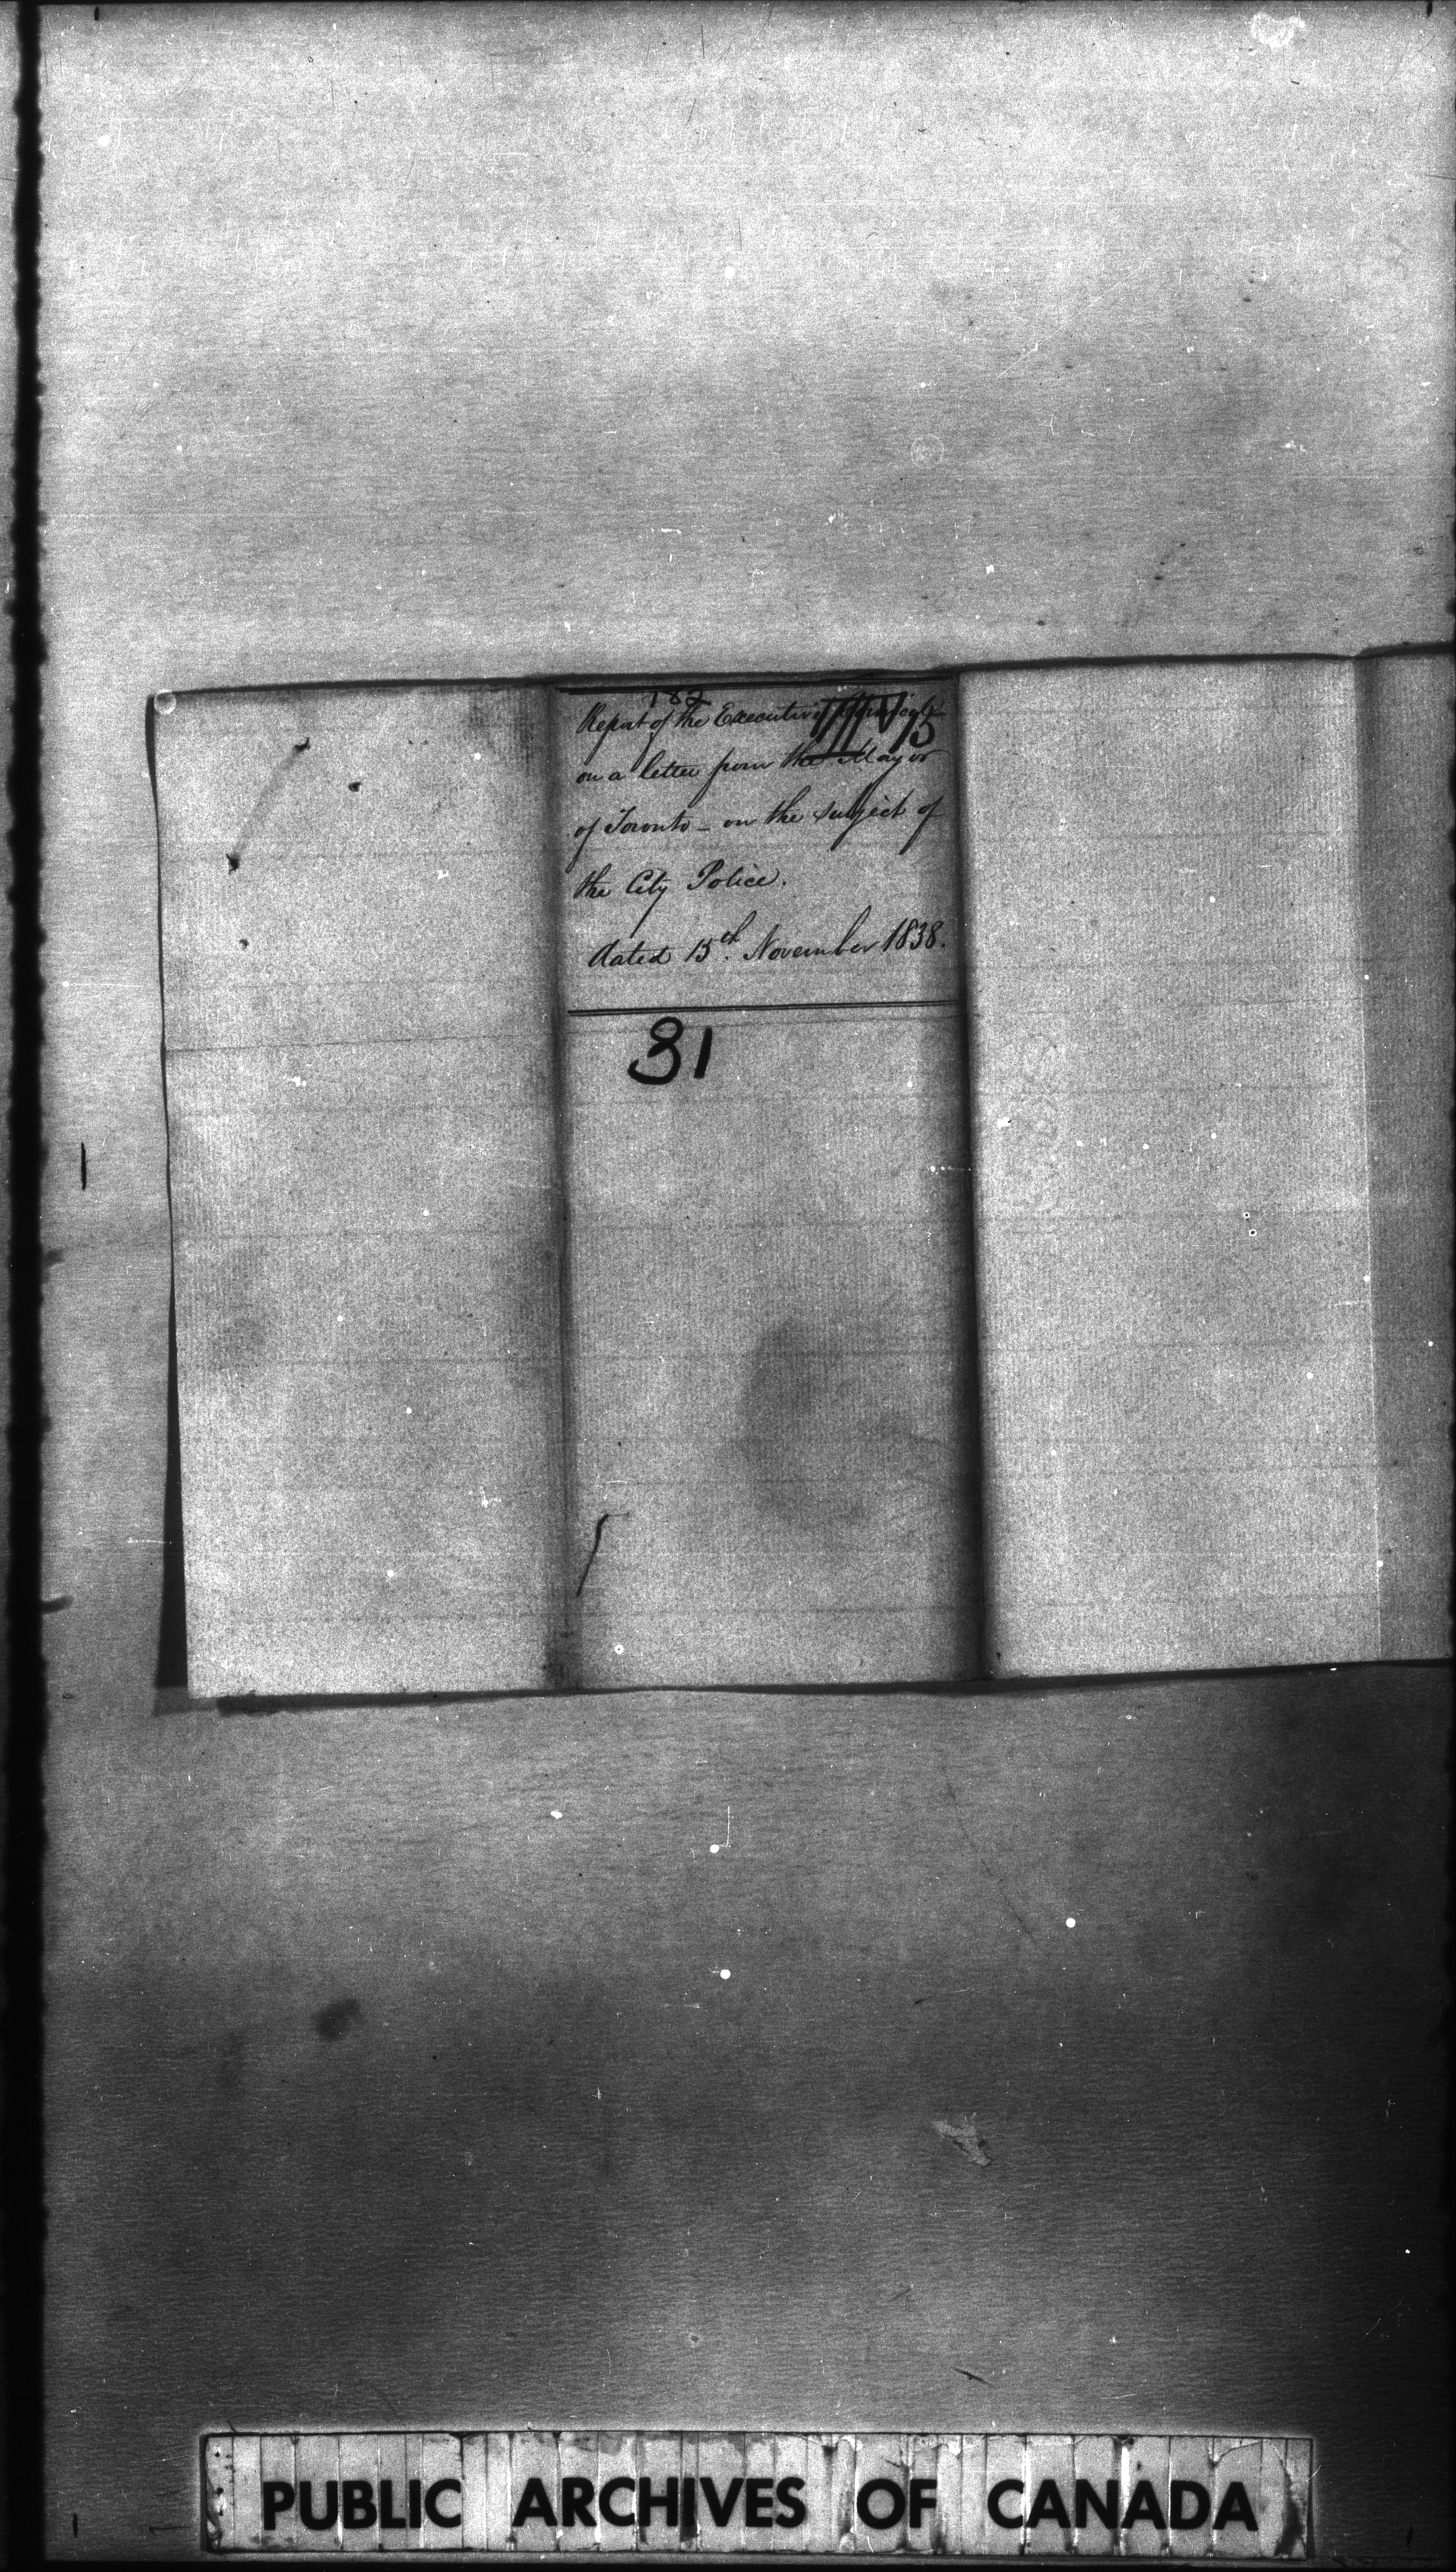 182
Report of the Executive Council
on a letter from the Mayor
of Toronto - on the subject of
the City Police.
dated 15th. November 1838.
31
PUBLIC ARCHIVES OF CANADA